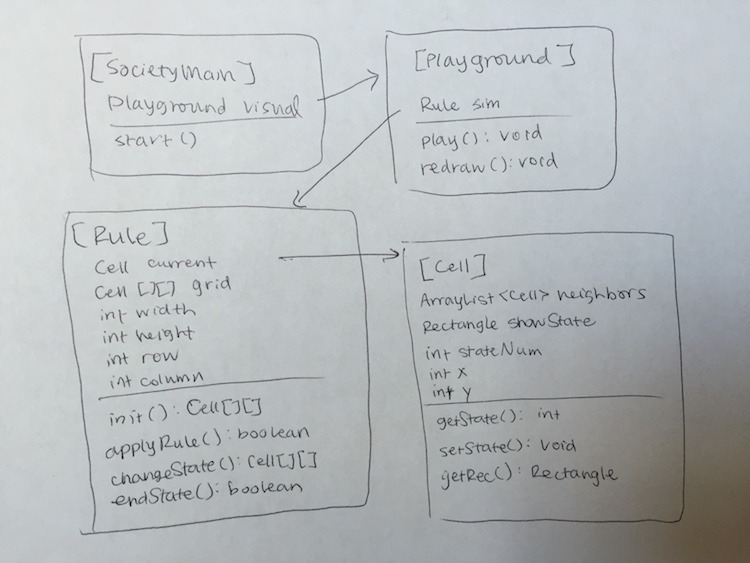 [SocietyMain]
Playground visual
start()
[Playground]
Rule sim
play(): void
redraw(): void
[Rule]
Cell current
Cell [][] grid
int width
int height
int row
int column
init(): Cell[][]
applyRule(): boolean
changeState(): Cell[][]
endState(): boolean
[Cell]
ArrayList <Cell> neighbors
Rectangle showState
int stateNum
int x
int y
getState(): int
setState(): void
getRec(): Rectangle